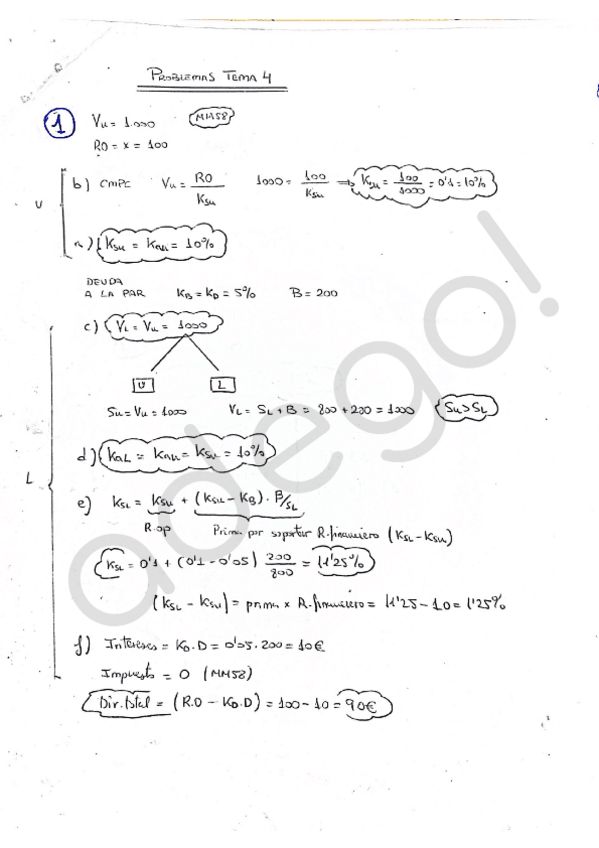 PROBLEMAS TEMA 4
1 Vu = 1.000 MM58
RO = x = 100
U
b) CMPC Vu = RO/Ksu 1000 = 100/Ksu ⇒ Ksu = 100/1000 = 0'1 = 10%
a) Ksu = Kau = 10%
DEUDA
A LA PAR KB = KD = 5% B = 200
L
c) VL = Vu = 1000
U L
Su = Vu = 1000 VL = SL + B = 800 + 200 = 1000 Su > SL
d) KaL = Kau = Ksu = 10%
e) KSL = Ksu + (Ksu - KB) · B/SL
R.op Prima por soportar R.financiero (KSL - Ksu)
KSL = 0'1 + (0'1 - 0'05) 200/800 = 11'25%
(KSL - Ksu) = prima x R.financiero = 11'25 - 10 = 1'25%
f) Intereses = KD.D = 0'05.200 = 10€
Impuesto = 0 (MM58)
Div.total = (R.O - KD.D) = 100 - 10 = 90€
adego!